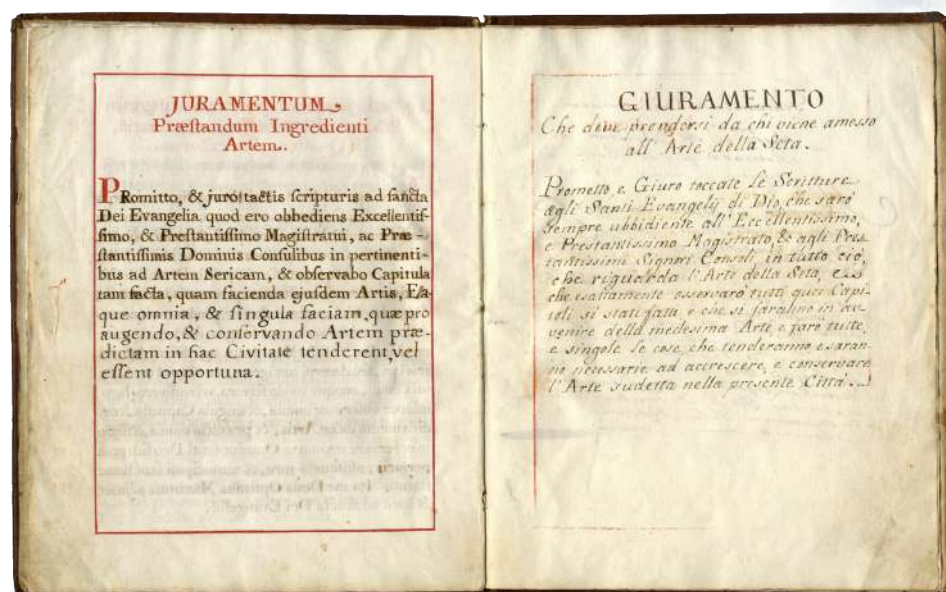 JURAMENTUM
Præſtandum Ingredienti
Artem.
PRomitto, & juro tactis ſcripturis ad ſancta
Dei Evangelia quod ero obbediens Excellentiſ-
ſimo, & Preſtantiſſimo Magiſtratui, ac Præ-
ſtantiſſimis Dominis Conſulibus in pertinenti-
bus ad Artem Sericam, & obſervabo Capitula
tam facta, quam facienda ejuſdem Artis, Ea-
que omnia, & ſingula faciam, quæ pro
augendo, & conſervando Artem præ-
dictam in hac Civitate tenderent, vel
eſſent opportuna.
GIURAMENTO
Che deve prendersi da chi viene amesso
all' Arte della Seta.
Prometto, e Giuro toccate le Scritture
agli Santi Evangelij di Dio, che sarò
sempre ubbidiente all' Eccellentissimo,
e Prestantissimo Magistrato, & agli Pres-
tantissimi Signori Consoli in tutto ciò,
che riguarda l'Arte della Seta, e
che esattamente osservarò tutti quei Capi-
toli si stati fatti, e che si faranno in av-
venire della medesima Arte e farò tutte,
e singole le cose, che tenderanno e saran-
no necessarie ad accrescere, e conservare
l'Arte sudetta nella presente Città.